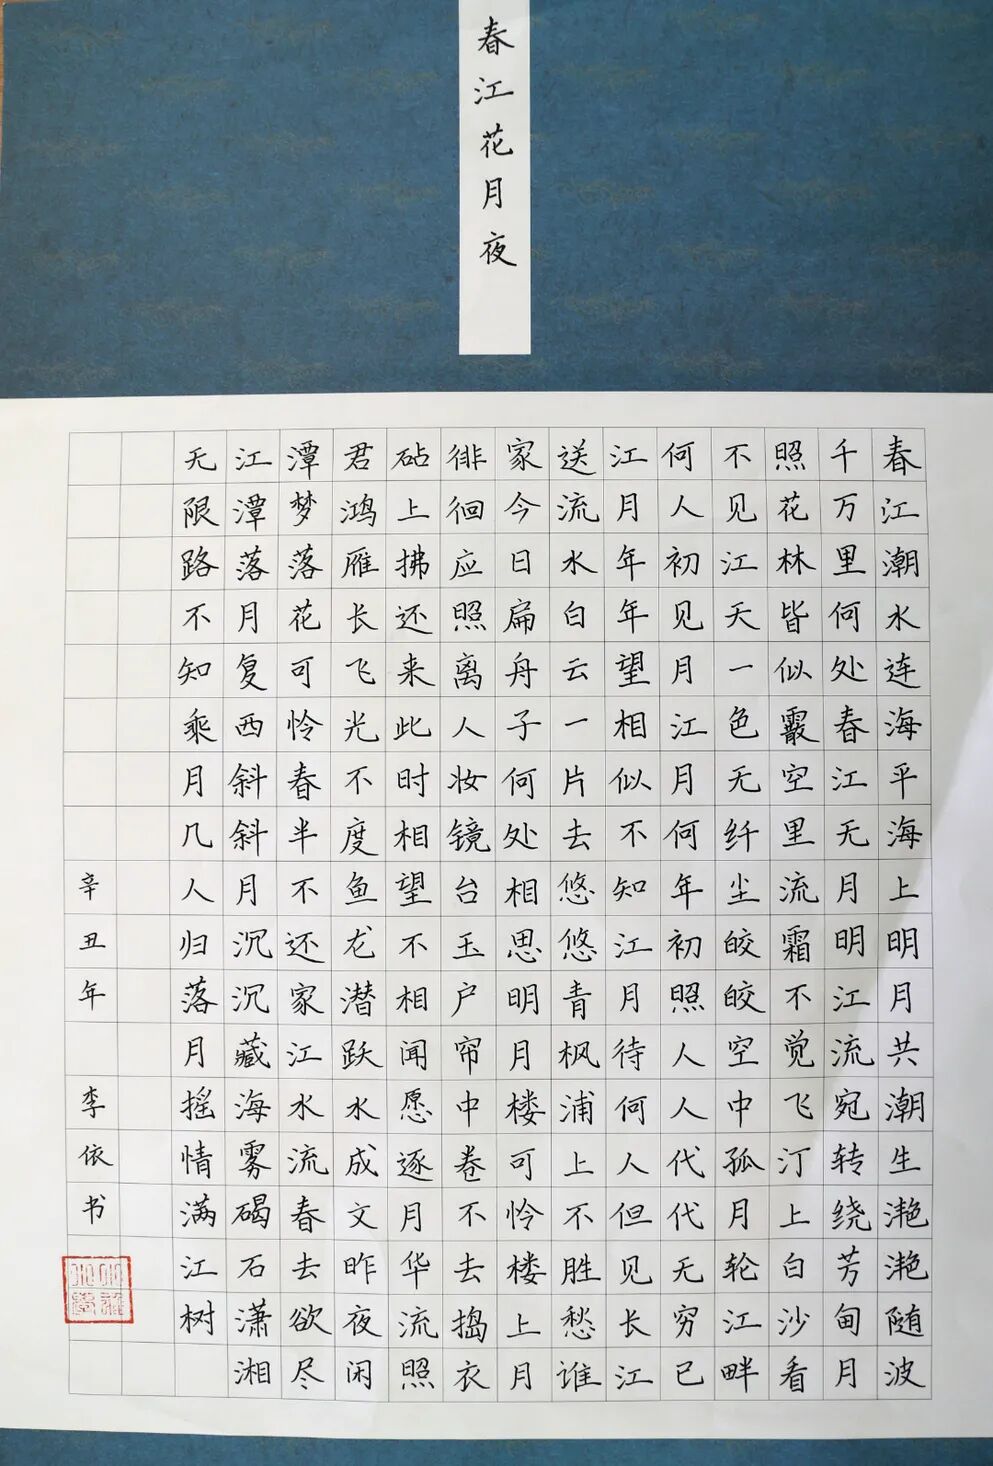 春江花月夜
春江潮水连海平海上明月共潮生滟滟随波
千万里何处春江无月明江流宛转绕芳甸月
照花林皆似霰空里流霜不觉飞汀上白沙看
不见江天一色无纤尘皎皎空中孤月轮江畔
何人初见月江月何年初照人人代代无穷已
江月年年望相似不知江月待何人但见长江
送流水白云一片去悠悠青枫浦上不胜愁谁
家今日扁舟子何处相思明月楼可怜楼上月
徘徊应照离人妆镜台玉户帘中卷不去捣衣
砧上拂还来此时相望不相闻愿逐月华流照
君鸿雁长飞光不度鱼龙潜跃水成文昨夜闲
潭梦落花可怜春半不还家江水流春去欲尽
江潭落月复西斜斜月沉沉藏海雾碣石潇湘
无限路不知乘月几人归落月摇情满江树
辛丑年 李依书